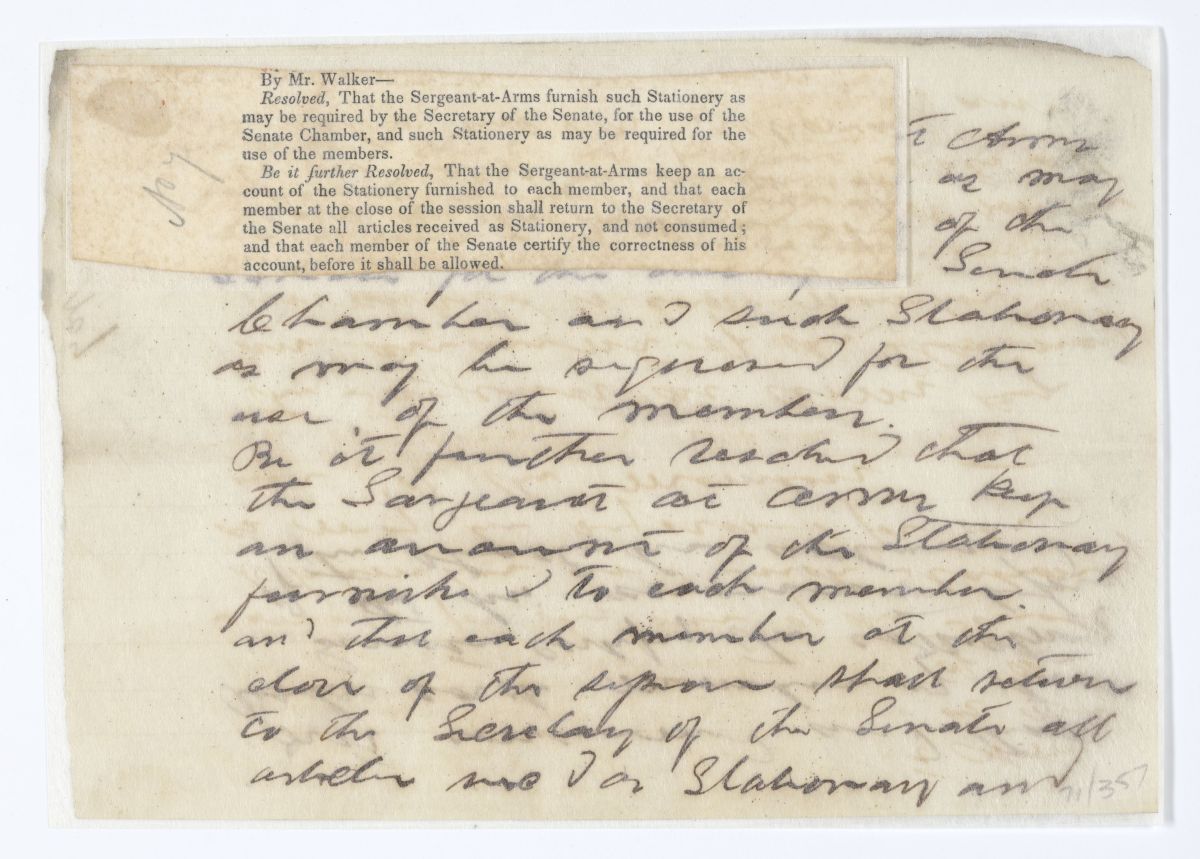 By Mr. Walker—
Resolved, That the Sergeant-at-Arms furnish such Stationery as
may be required by the Secretary of the Senate, for the use of the
Senate Chamber, and such Stationery as may be required for the
use of the members.
Be it further Resolved, That the Sergeant-at-Arms keep an ac-
count of the Stationery furnished to each member, and that each
member at the close of the session shall return to the Secretary of
the Senate all articles received as Stationery, and not consumed;
and that each member of the Senate certify the correctness of his
account, before it shall be allowed.
Arms
as may
of the
Senate
Chamber and such Stationary
as may be required for the
use of the members.
Be it further resolved that
the Sargeant at arms keep
an account of the Stationary
furnished to each member.
and that each member at the
close of the session shall return
to the Secretary of the Senate all
articles recd as Stationary and